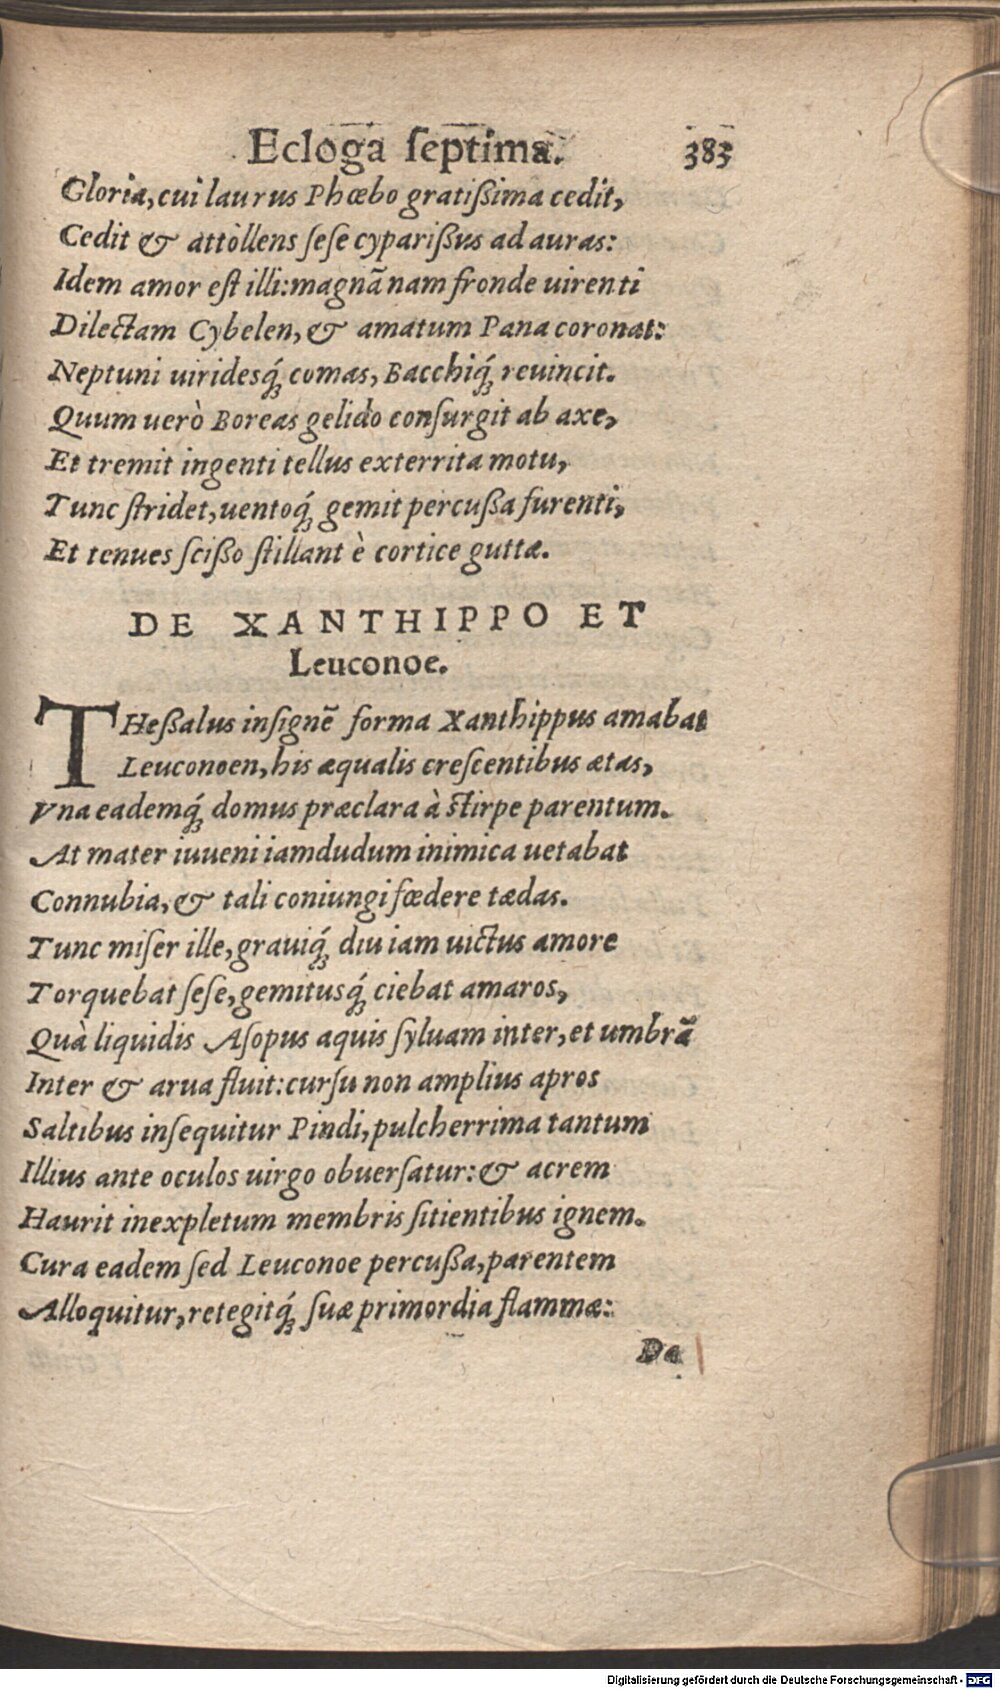 Ecloga ſeptima. 383
Gloria, cui laurus Phœbo gratißima cedit,
Cedit & attòllens ſeſe cyparißus ad auras:
Idem amor eſt illi: magnā nam fronde uirenti
Dilectam Cybelen, & amatum Pana coronat:
Neptuni uiridesq́; comas, Bacchiq́; reuincit.
Quum uerò Boreas gelido conſurgit ab axe,
Et tremit ingenti tellus exterrita motu,
Tunc ſtridet, uentoq́; gemit percußa furenti,
Et tenues ſcißo ſtillant è cortice guttæ.
DE XANTHIPPO ET
Leuconoe.
THeßalus inſignē forma Xanthippus amabat
Leuconoen, his æqualis creſcentibus ætas,
Vna eademq́; domus præclara à ſtirpe parentum.
At mater iuueni iamdudum inimica uetabat
Connubia, & tali coniungi fœdere tædas.
Tunc miſer ille, grauiq́; diu iam uictus amore
Torquebat ſeſe, gemitusq́; ciebat amaros,
Quà liquidis Aſopus aquis ſyluam inter, et umbrā
Inter & arua fluit: curſu non amplius apros
Saltibus inſequitur Pindi, pulcherrima tantum
Illius ante oculos uirgo obuerſatur: & acrem
Haurit inexpletum membris ſitientibus ignem.
Cura eadem ſed Leuconoe percußa, parentem
Alloquitur, retegitq́; ſuæ primordia flammæ:
Da
Digitalisierung gefördert durch die Deutsche Forschungsgemeinschaft - DFG